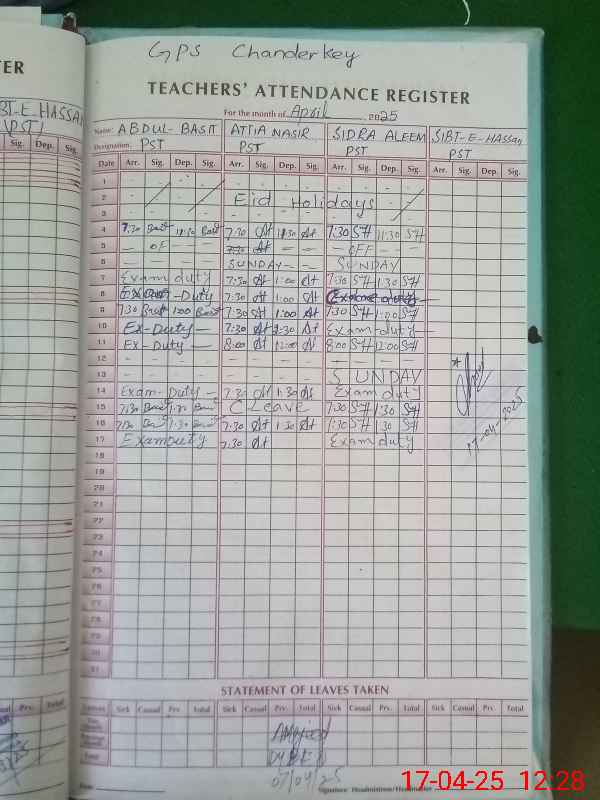 GPS Chanderkey
TER
TEACHERS' ATTENDANCE REGISTER
For the month of April 2025
BT-E-HASSAN
(PST)
Name: ABDUL-BASIT ATTIA NASIR SIDRA ALEEM SIBT-E-HASSAN
Designation: PST PST PST PST
Sig. Dep. Sig.
Date Arr. Sig. Dep. Sig. Arr. Sig. Dep. Sig. Arr. Sig. Dep. Sig. Arr. Sig. Dep. Sig.
1
2 Eid Holidays
3
4 7:30 Basit 11:30 Basit 7:30 At 11:30 At 7:30 SH 11:30 SH
5 OF 7:30 At OFF
6 SUNDAY SUNDAY
7 Exam duty 7:30 At 1:00 At 7:30 SH 1:30 SH
8 Duty 7:30 At 1:00 At Exam duty
9 7:30 Basit 1:00 Basit 7:30 At 1:00 At 7:30 SH 1:00 SH
10 Ex-Duty 7:30 At At Exam-duty
11 Ex-Duty 8:00 At 12:00 At 8:00 SH 12:00 SH
12
13 SUNDAY
14 Exam-Duty 7:30 At 1:30 At Exam duty
15 7:30 Basit 1:30 Basit C Leave 7:30 SH 1:30 SH
16 7:30 Basit 1:30 Basit 7:30 At 1:30 At 7:30 SH 1:30 SH
17 Exam Duty 7:30 At Exam duty
17-04-2025
18
19
20
21
22
23
24
25
26
27
28
29
30
31
STATEMENT OF LEAVES TAKEN
Casual Prv. Total
Leaves Sick Casual Prv. Total Sick Casual Prv. Total Sick Casual Prv. Total Sick Casual Prv. Total
07/04/25
Date Signature Headmistress/Headmaster
17-04-25 12:28